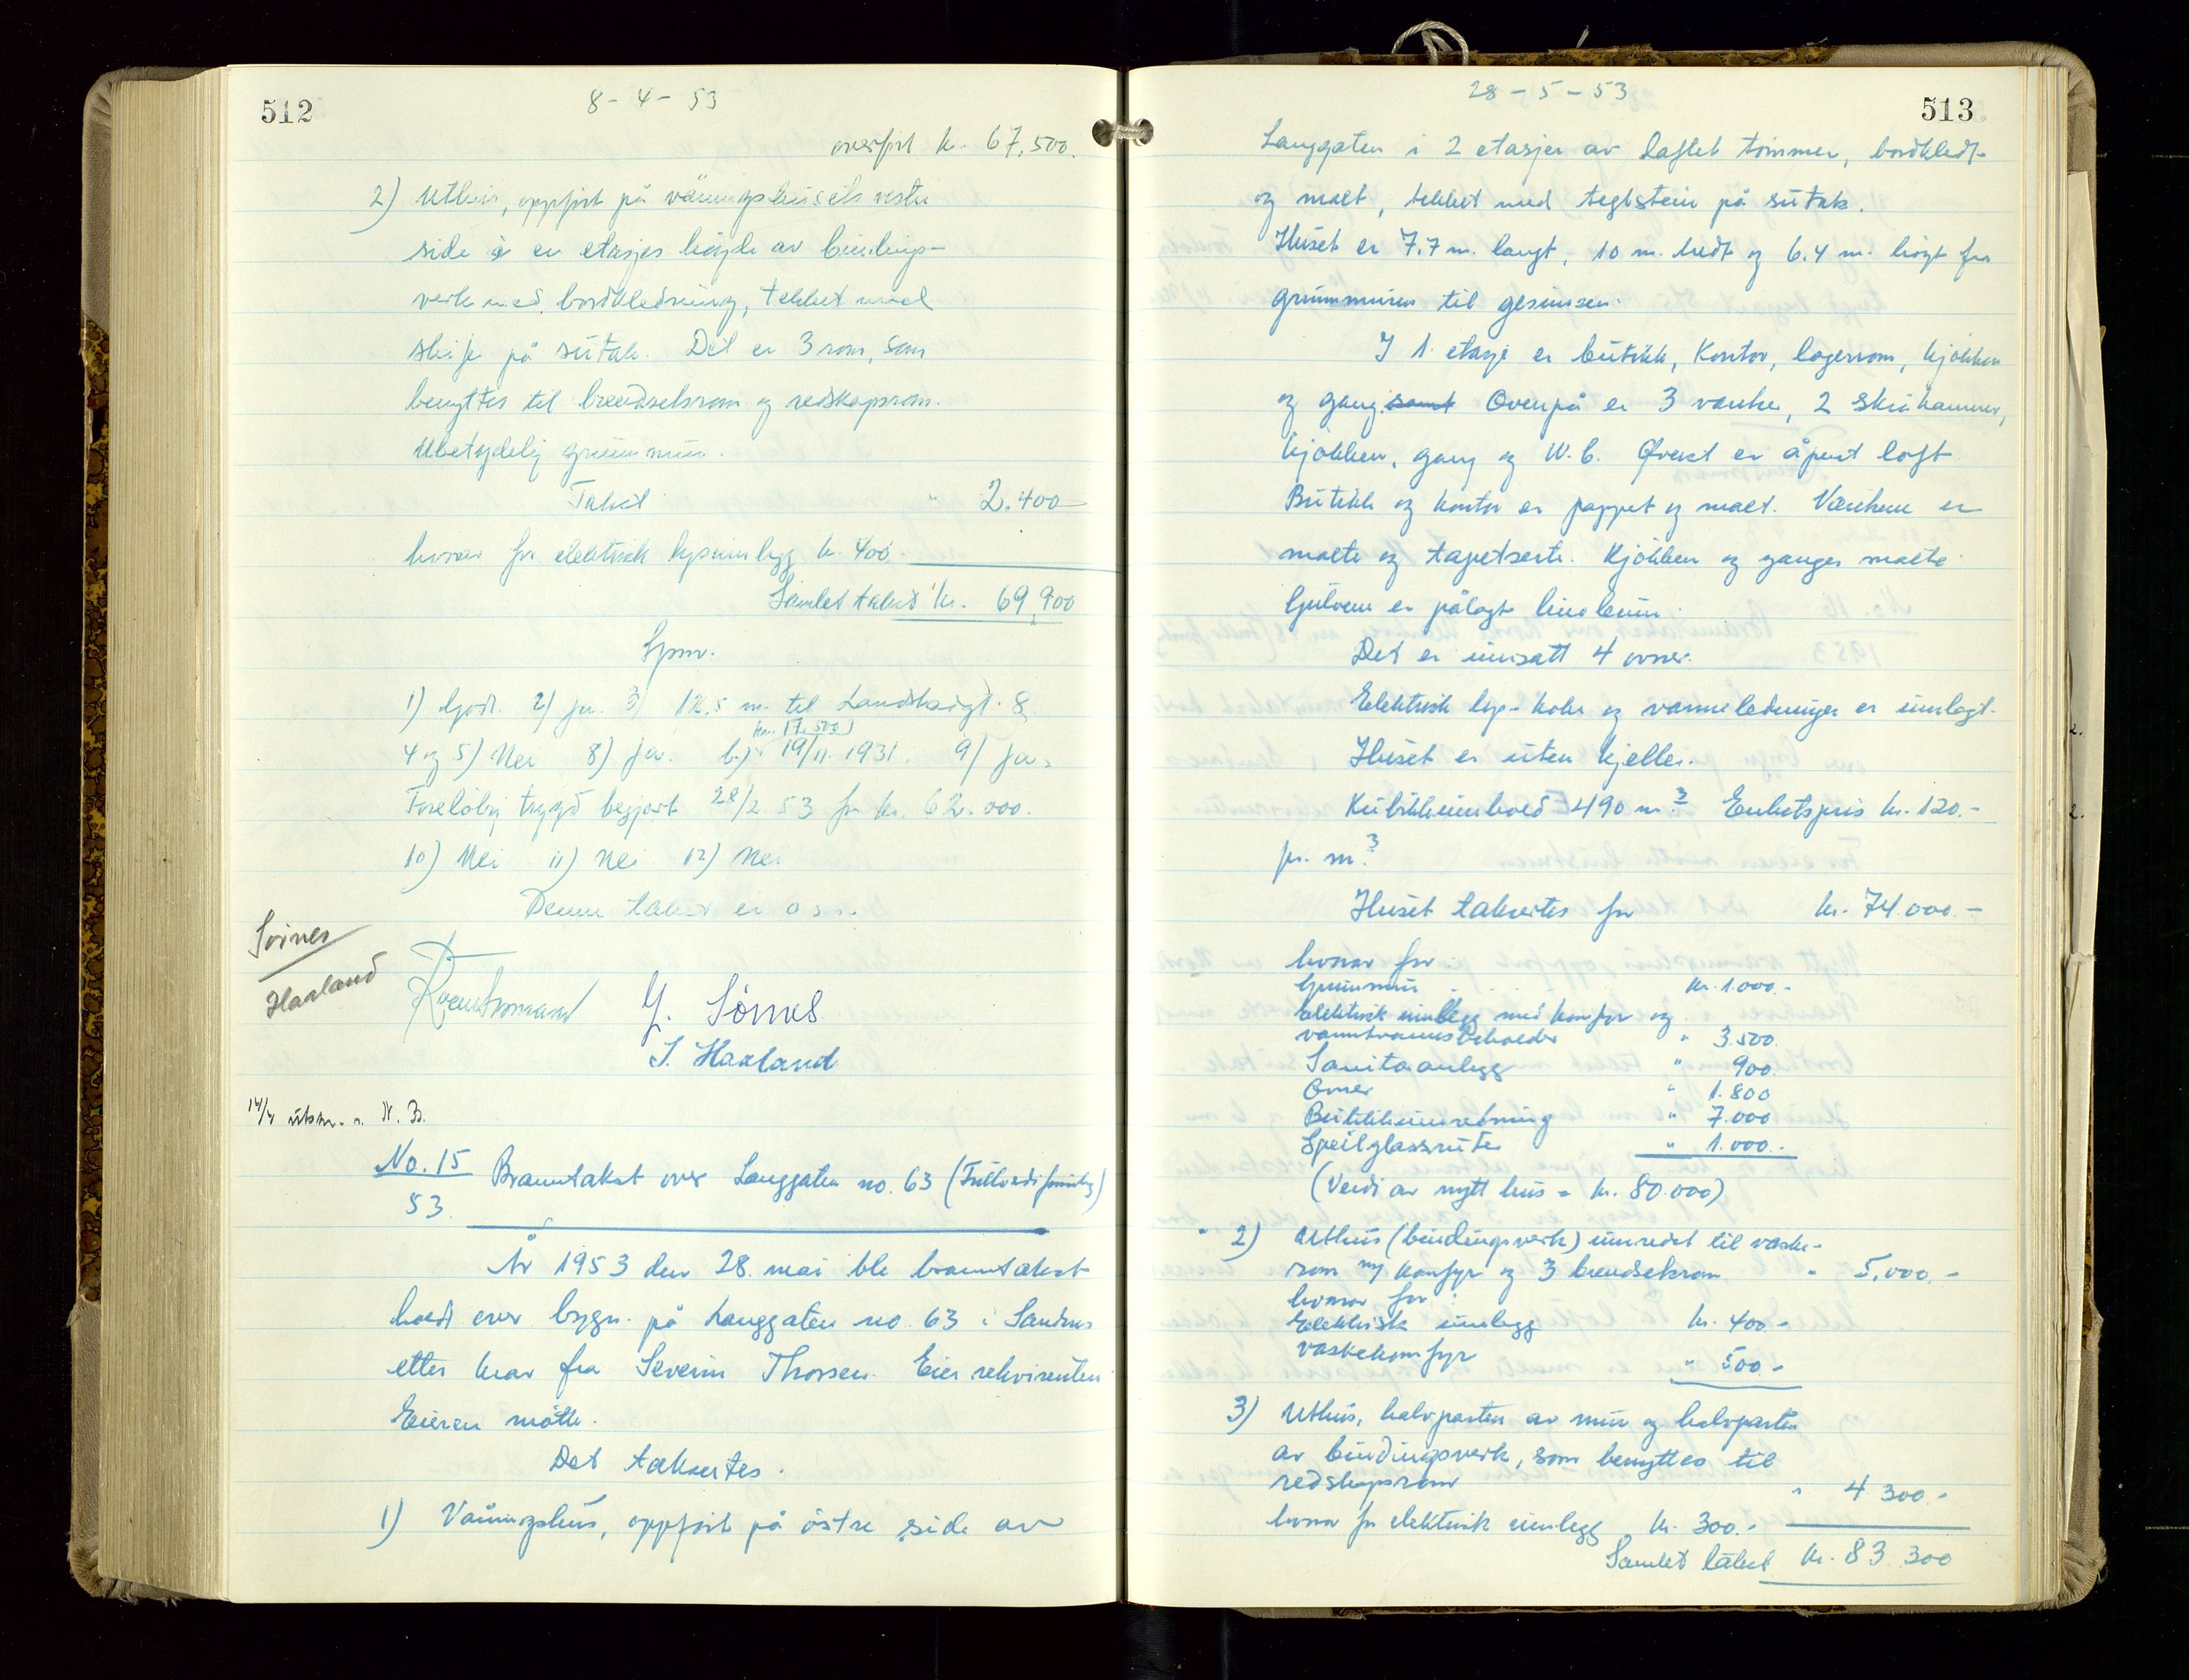 512
8 - 4 - 53
overført kr. 67,500.
2) Uthus, oppført på våningshusets vestre
side i en etasjes høyde av bindings-
verk med bordkledning, tekket med
skifer på sutak. Det er 3 rom, som
benyttes til brendselsrom og redskapsrom.
Ubetydelig grunnmur.
Takst " 2.400
hvorav for elektrisk lysinnlegg kr. 400.
Samlet takst kr. 69,900
Spm.
1) Godt. 2) Ja. 3) 12,5 m. til Landshaigt. 8
4 og 5) Nei 8) Ja. b.) 19/11. 1931. 9) Ja.
kr. 17.500
Foreløbig trygd begjært 28/2 53 for kr. 62.000.
10) Nei 11) Nei 12) Nei
Denne takst er
Sørnes
Haaland
Y. Sørnes
S. Haaland
14/4 utskr. N. B.
No. 15
53.
Branntakst over Langgaten no. 63 (Fullverdiforsikring)
År 1953 den 28. mai ble branntakst
holdt over bygn. på Langgaten no. 63 i Sandnes
etter krav fra Severin Thorsen. Eier rekvirenten
Eieren møtte.
Det taksertes.
1) Våningshus, oppført på østre side av
28 - 5 - 53
513
Langgaten i 2 etasjer av laftet tømmer, bordkledt
og malt, tekket med teglstein på sutak.
Huset er 7.7 m. langt, 10 m. bredt og 6.4 m. høgt fra
grunnmuren til gesimsen.
I 1. etasje er butikk, kontor, lagerrom, kjøkken
og gang samt Ovenpå er 3 værelser, 2 skråkammer,
kjøkken, gang og W.C. Øverst er åpent loft.
Butikk og kontor er pappet og malt. Værelsene er
malte og tapetserte. Kjøkken og ganger malte.
Gulvene er pålagt linoleum.
Det er innsatt 4 ovner.
Elektrisk lys- koke og varmeledninger er innlagt.
Huset er uten kjeller.
Kubikkinnhold 490 m.3 Enhetspris kr. 120.-
pr. m.3
Huset takseres for kr. 74.000.-
hvorav for:
Grunnmur kr. 1.000.-
Elektrisk innlegg med komfyr og
varmtvannsbeholder " 3.500.
Sanitæranlegg " 900.
Ovner " 1.800
Butikkinnredning " 7.000
Speilglassruter " 1.000.-
(Verdi av nytt hus = kr. 80.000)
2) Uthus (bindingsverk) innredet til vaske-
rom m/ komfyr og 3 brendselsrom " 5.000.-
hvorav for:
Elektrisk innlegg kr. 400.-
vaskekomfyr " 500.-
3) Uthus, halvparten av mur og halvparten
av bindingsverk, som benyttes til
redskapsrom " 4 300.-
hvorav for elektrisk innlegg kr. 300.-
Samlet takst kr. 83.300